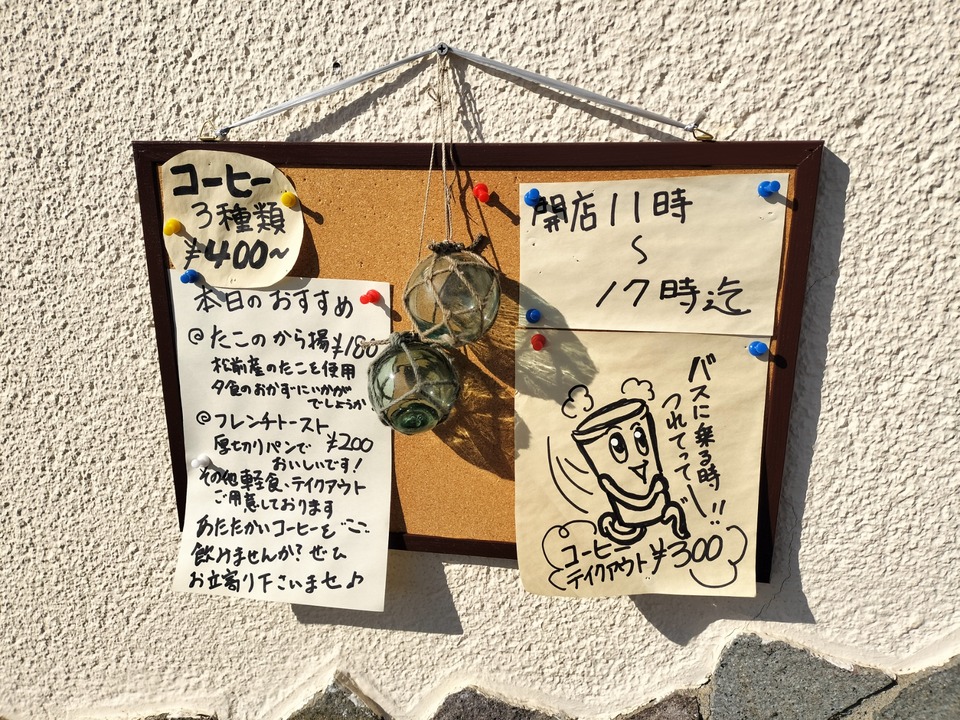 コーヒー
3種類
¥400~
本日のおすすめ
@たこのから揚¥180
松前産のたこを使用
夕食のおかずにいかが
でしょうか
@フレンチトースト
厚切りパンで ¥200
おいしいです!
その他軽食、テイクアウト
ご用意しております
あたたかいコーヒーを
飲みませんか?ぜひ
お立寄り下さいませ♪
開店11時
~
17時迄
バスに乗る時
つれてってー!!
コーヒー
テイクアウト¥300